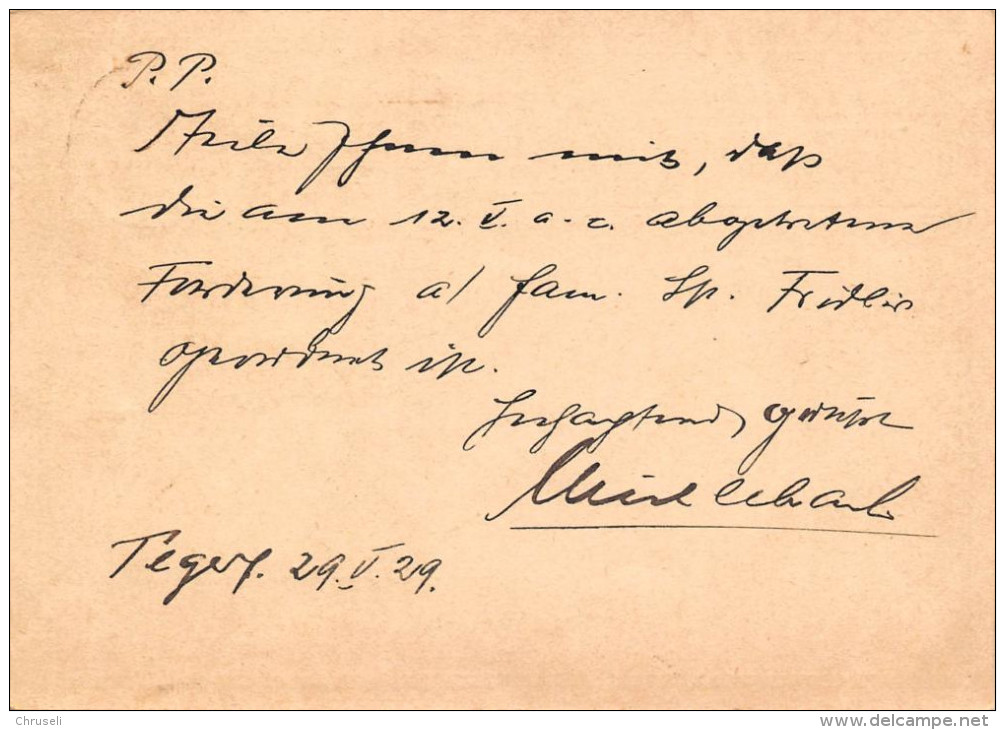 P. P.
Teile Ihnen mit, daß
die am 12. V. a. c. abgetretene
Forderung a/ Fam. Sp. Fridlin
geordnet ist.
Hochachtend grüßt
Tegerf. 29. V. 29.
Chruseli
www.delcampe.net